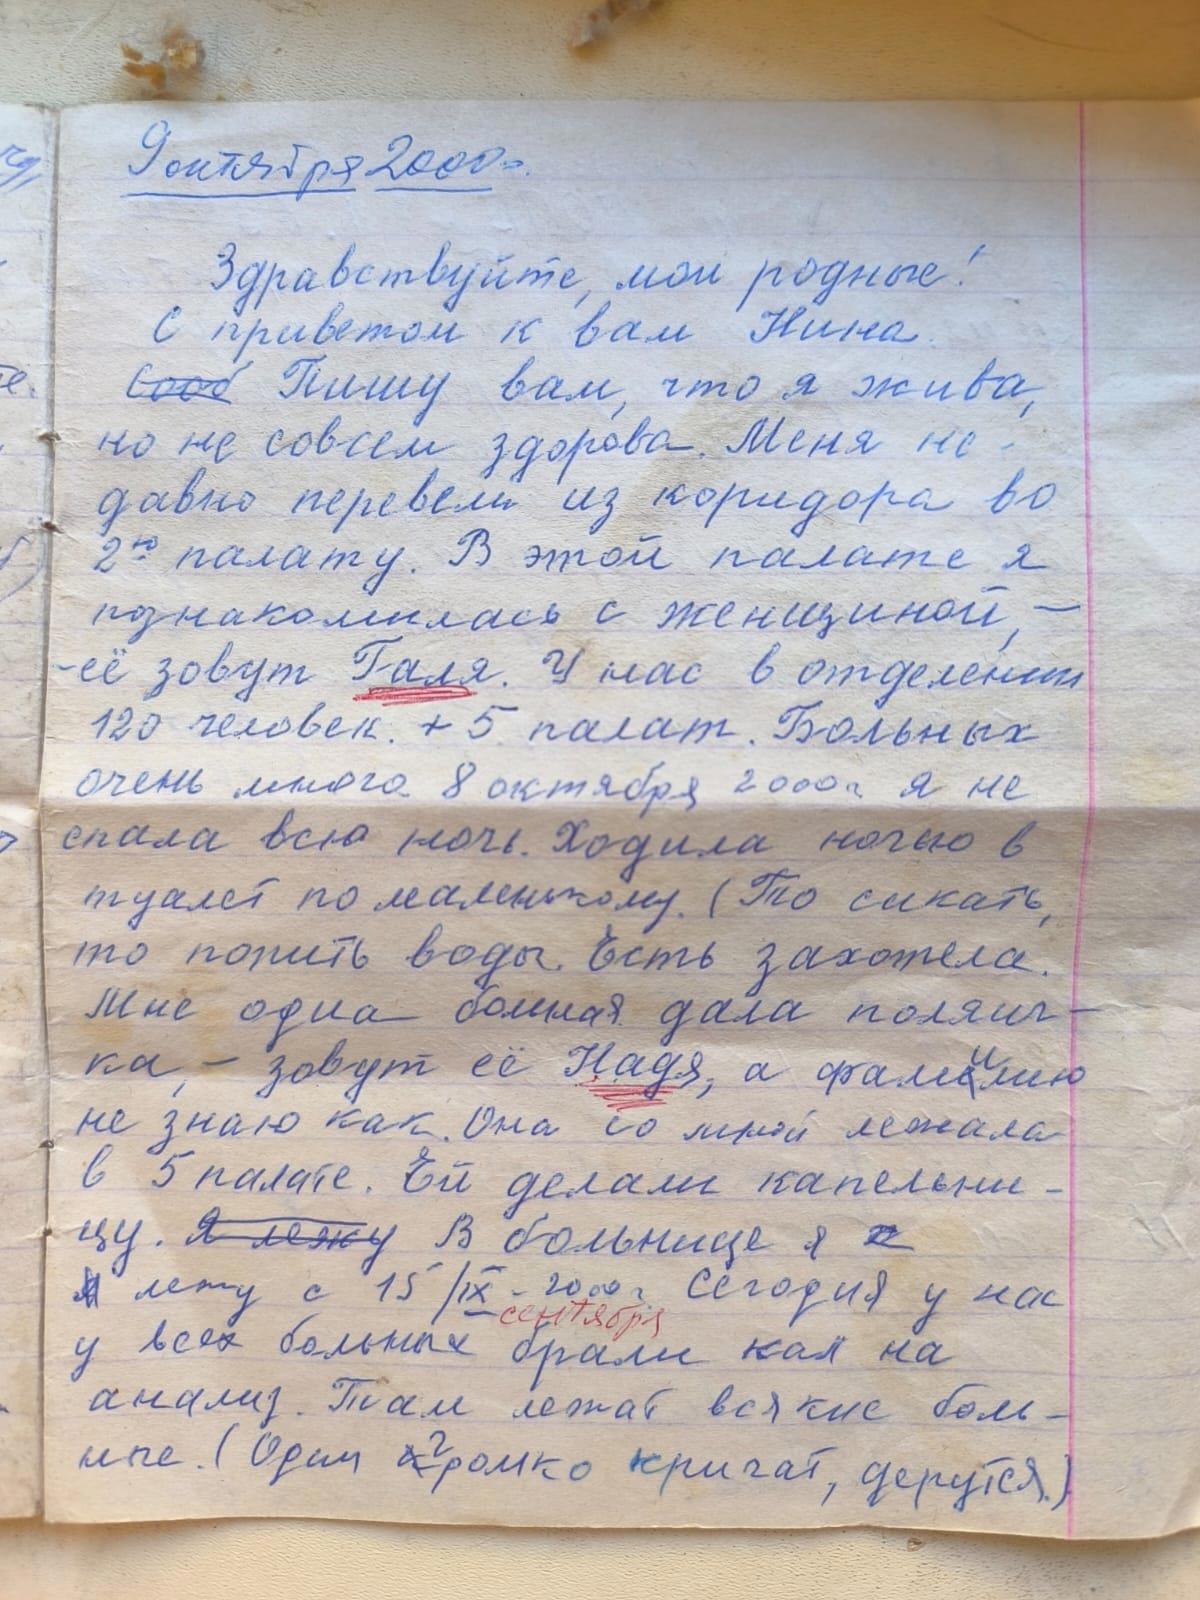 9 октября 2000г.
Здравствуйте, мои родные!
С приветом к вам Нина.
Сооб Пишу вам, что я жива,
но не совсем здорова. Меня не-
давно перевели из коридора во
2ю палату. В этой палате я
познакомилась с женщиной, –
-её зовут Галя. У нас в отделении
120 человек. + 5 палат. Больных
очень много 8 октября 2000г. я не
спала всю ночь. Ходила ночью в
туалет по маленькому. (То сикать,
то попить воды. Есть захотела.
Мне одна больная дала полянич-
ка, – зовут её Надя, а фамилию
не знаю как. Она со мной лежала
в 5 палате. Ей делали капельни-
цу. Я лежу В больнице я
лежу с 15/IX - 2000г. Сегодня у нас
сентября
у всех больных брали кал на
анализ. Там лежат всякие боль-
ные. (Одни громко кричат, дерутся.)